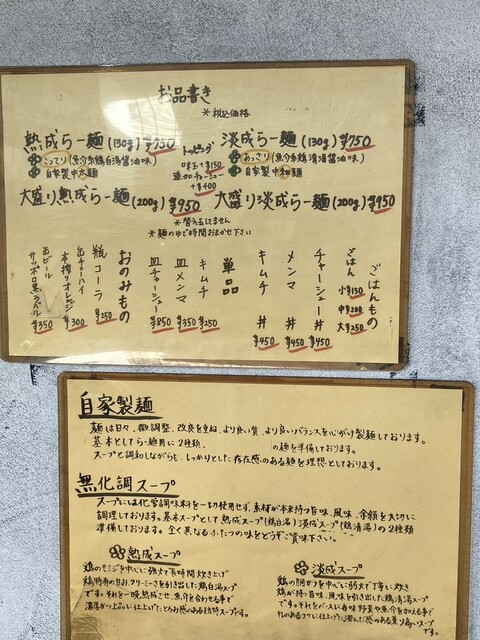 お品書き
*税込価格
熟成らー麺(130g)¥750
こってり(魚介系鶏白湯醤油味)
自家製中太麺
トッピング
味玉+¥150
追加チャーシュー
+¥400
淡成らー麺(130g)¥750
あっさり(魚介系鶏清湯醤油味)
自家製中細麺
大盛り熟成らー麺(200g)¥950
大盛り淡成らー麺(200g)¥950
*替え玉はしてません
*麺のゆで時間おまかせ下さい
ごはんもの
ごはん 小¥150
中¥200
大¥250
チャーシュー丼 ¥450
メンマ丼 ¥450
キムチ丼 ¥450
単品
キムチ ¥250
皿メンマ ¥350
皿チャーシュー ¥850
おのみもの
瓶コーラ ¥250
缶チューハイ
本搾りオレンジ ¥300
缶ビール
サッポロ黒ラベル ¥350
自家製麺
麺は日々、微調整、改良を重ね、より良い質、より良いバランスを心がけ製麺しております。
基本としてらー麺用に2種類、の麺を準備しております。
スープと調和しながらも、しっかりとした存在感のある麺を理想としております。
無化調スープ
スープには化学調味料を一切使用せず、素材が本来持つ旨味、風味、余韻を大切に
調理しております。基本スープとして熟成スープ(鶏白湯)淡成スープ(鶏清湯)の2種類
準備しております。全く異なるふたつの味をどうぞご賞味下さい。
熟成スープ
鶏のモミジを中心に強火で長時間炊き上げ
鶏特有の旨み、クリーミーさを引き出した鶏白湯スープ
です。それを一晩熟成させ、魚介を合わせる事で
濃厚かつ上品に仕上げたとろみ感のある独特スープです。
淡成スープ
鶏の胴ガラを中心に弱火で丁寧に炊き
鶏が持つ旨味、風味を引き出した鶏清湯スープ
です。それをベースに香味野菜や魚介を加える事で